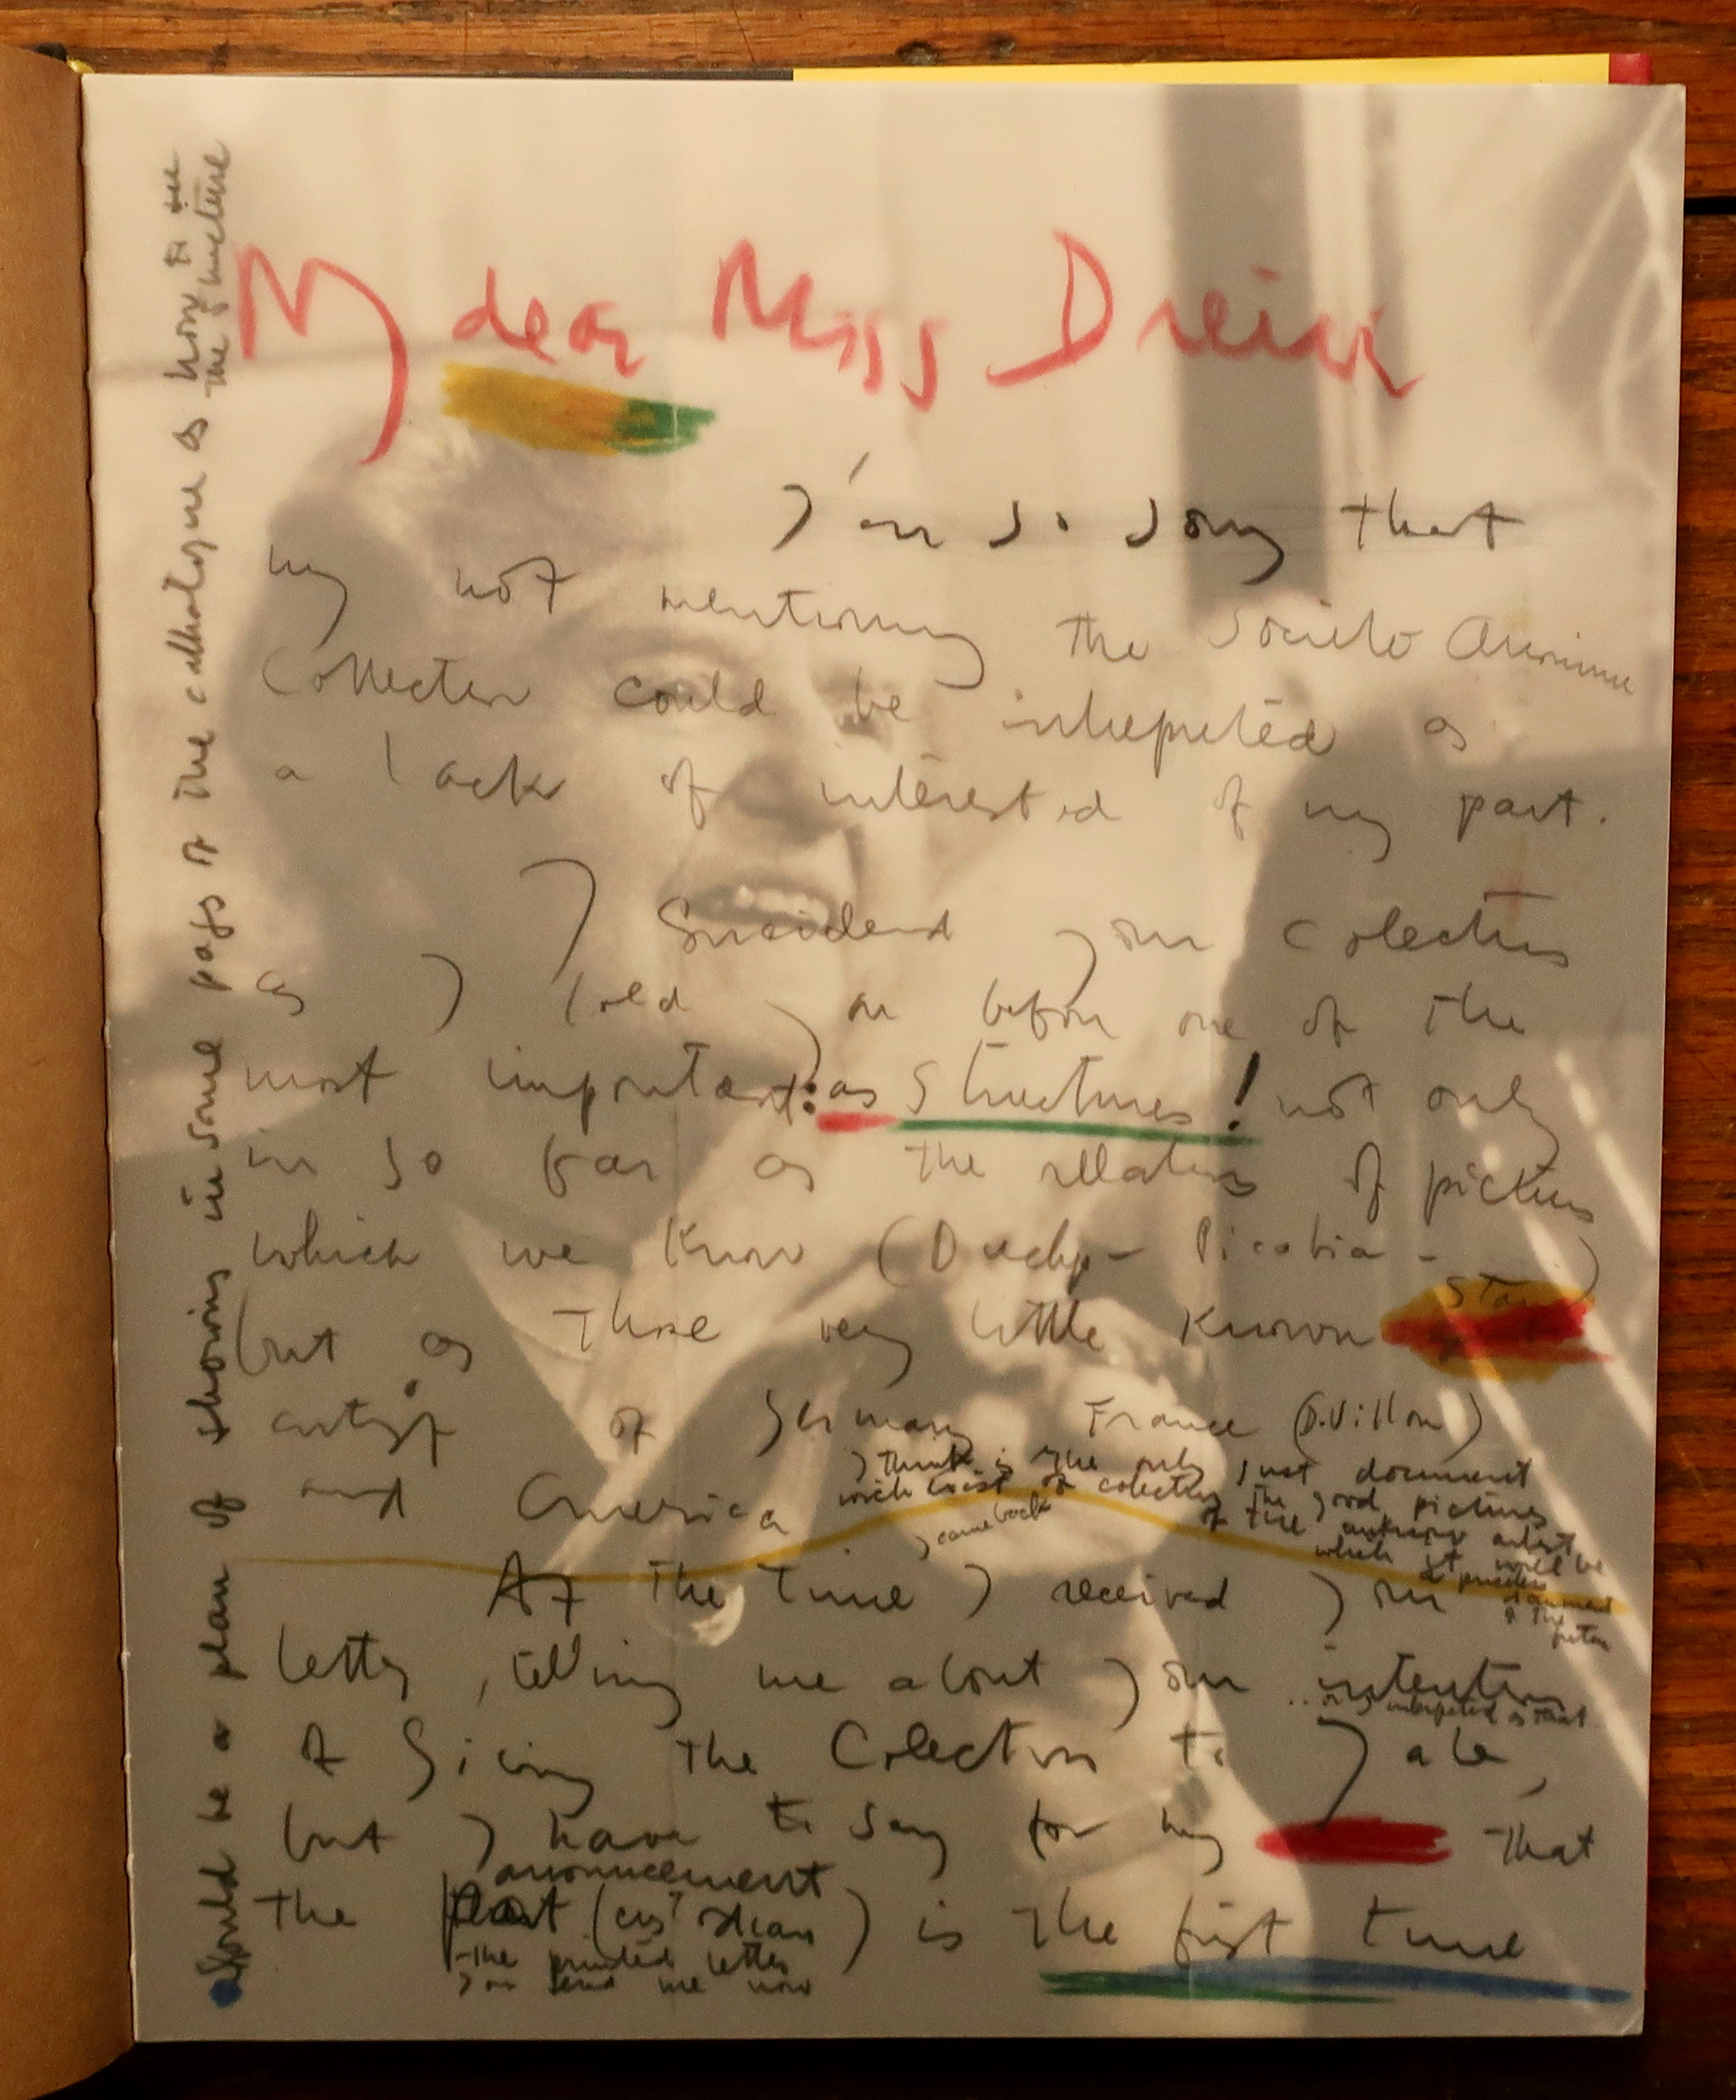 My dear Miss Dreier
I'am so sorry that
my not mentioning the Societe Anonime
Collection could be interpreted as
a lack of interest of my part.
I your Colection
as I told you before one of the
most important: as Structures! not only
in so far as the relations of pictures
which we know (Duchp - Picabia -
but as those very little known
of Germany France (D. Villon)
I think is the only just document
of colecting the good pictures
and America
I came back
At the time I received your
letter, telling me about your intention
of Giving the Colection to Yale,
but I have to say for my that
announcement
the is the first time
the printed letter
you send me now
Should be a plan of showing in some pags of the cathalogue as how to see
the structure